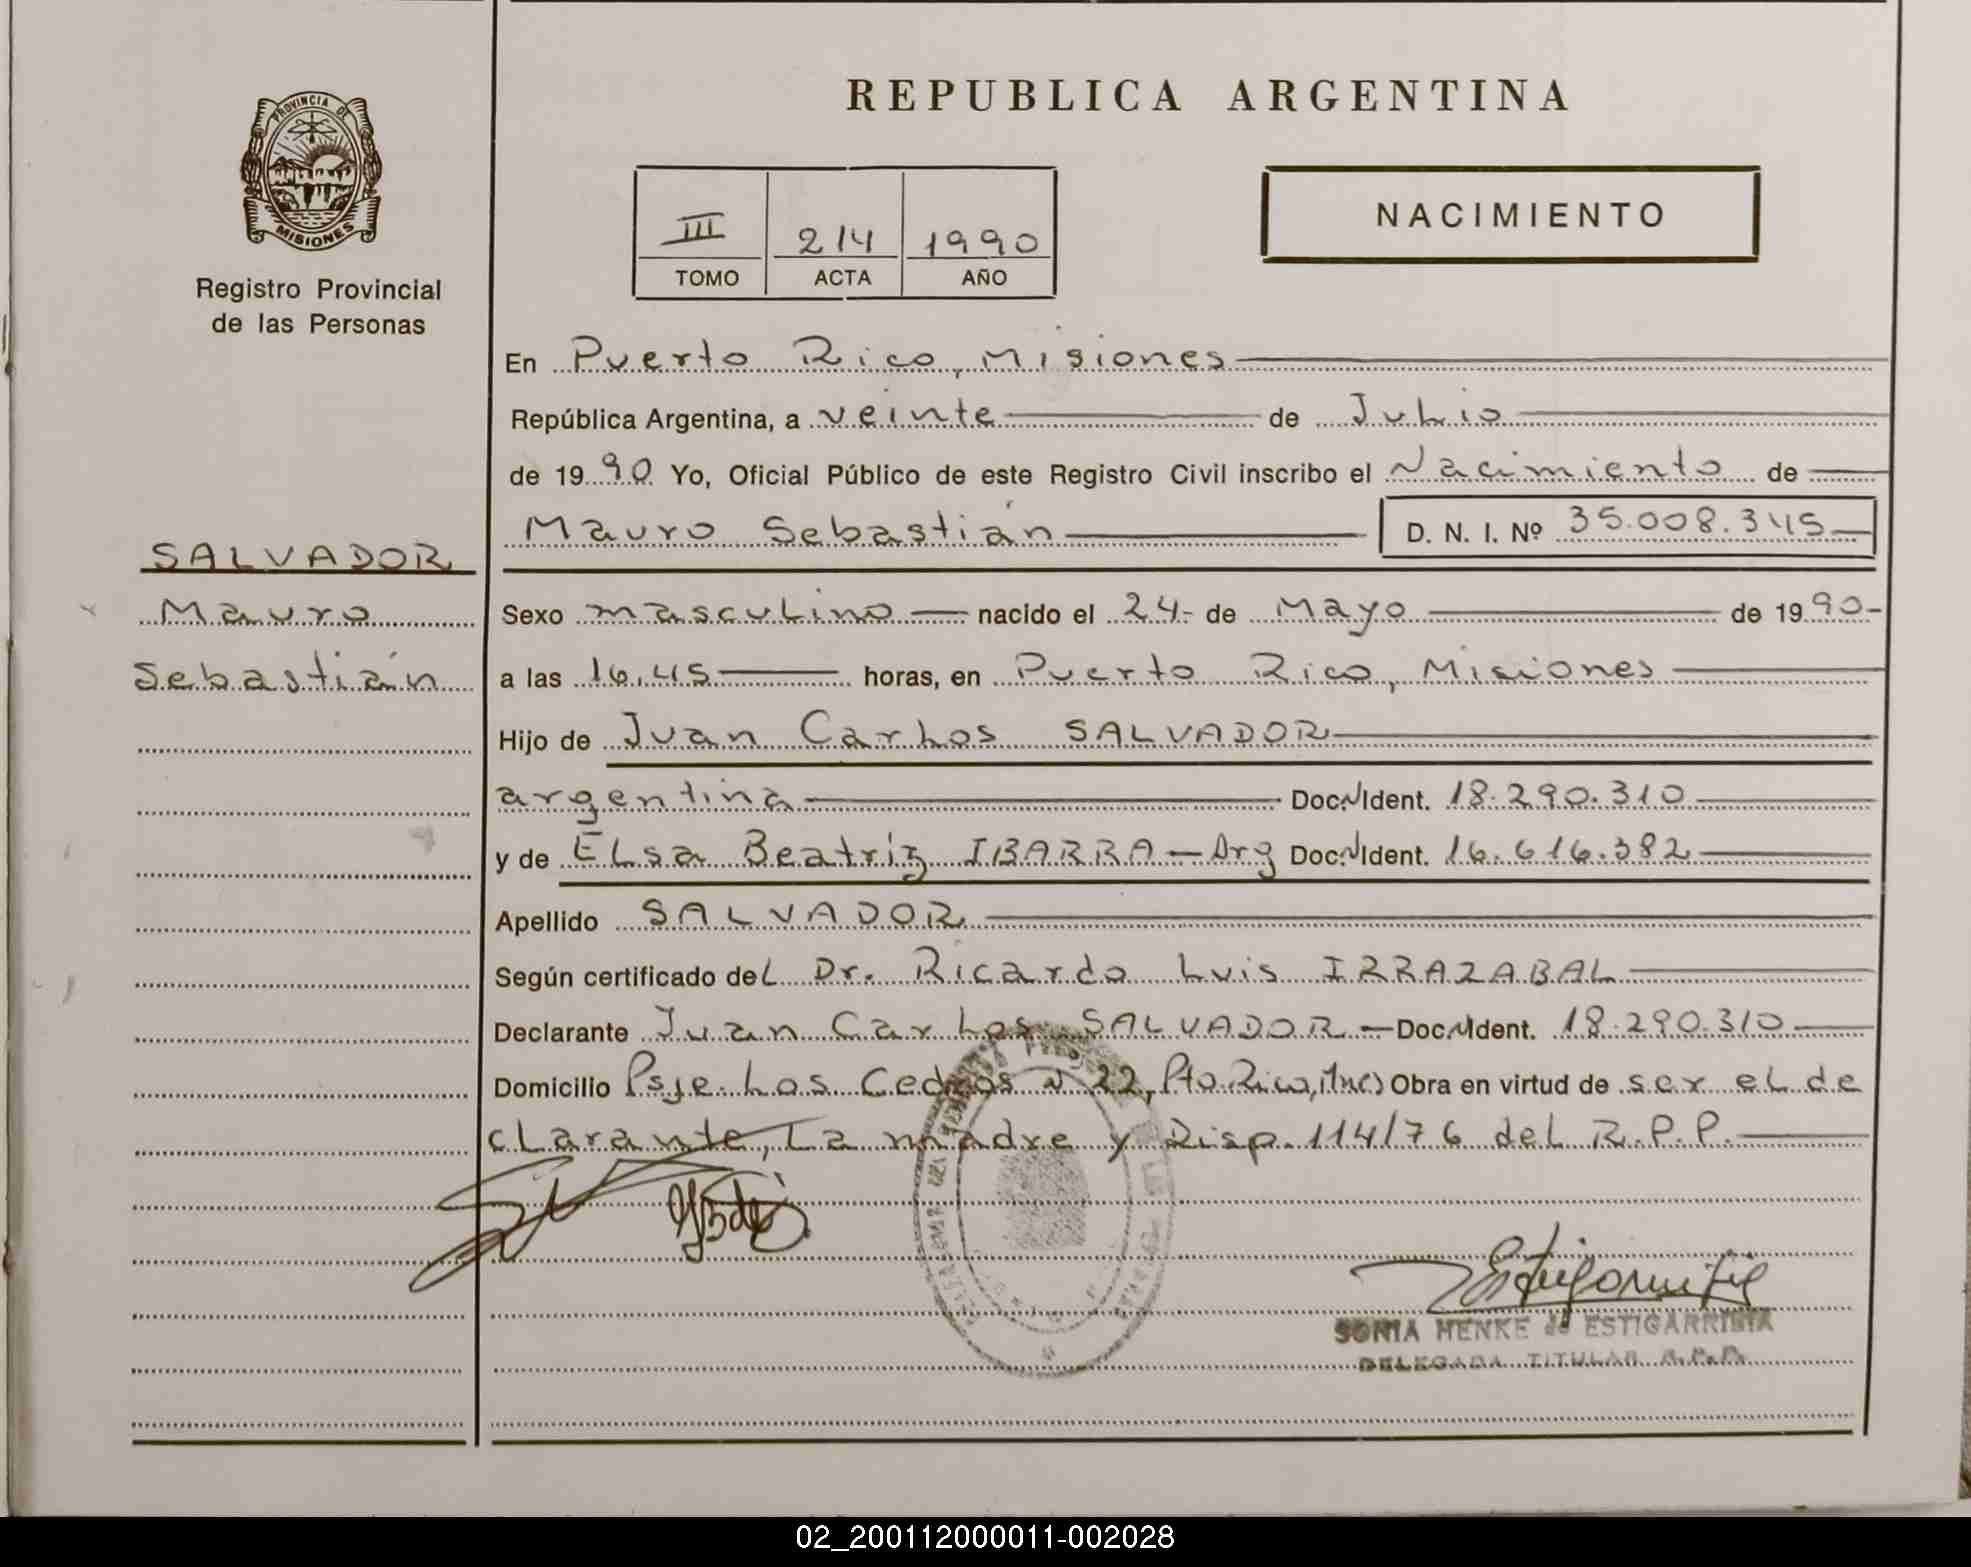 REPUBLICA ARGENTINA
PROVINCIA DE
MISIONES
Registro Provincial
de las Personas
III 214 1990
TOMO ACTA AÑO
NACIMIENTO
En Puerto Rico, Misiones
República Argentina, a veinte de Julio
de 1990 Yo, Oficial Público de este Registro Civil inscribo el Nacimiento de
Mauro Sebastián D. N. I. Nº 35.008.345
SALVADOR
Mauro
Sebastián
Sexo masculino nacido el 24- de Mayo de 1990-
a las 16,45 horas, en Puerto Rico, Misiones
Hijo de Juan Carlos SALVADOR
argentina Doc.N Ident. 18.290.310
y de Elsa Beatriz IBARRA - Arg Doc.N Ident. 16.616.382
Apellido SALVADOR
Según certificado del Dr. Ricardo Luis IRRAZABAL
Declarante Juan Carlos SALVADOR - Doc.N Ident. 18.290.310
Domicilio Psje. Los Cedros N° 22, Pto Rico, (Mnes) Obra en virtud de ser el de
clarante, La madre y Disp. 114/76 del R.P.P.
SONIA HENKE de ESTIGARRIBIA
DELEGADA TITULAR R.P.P.
02_200112000011-002028